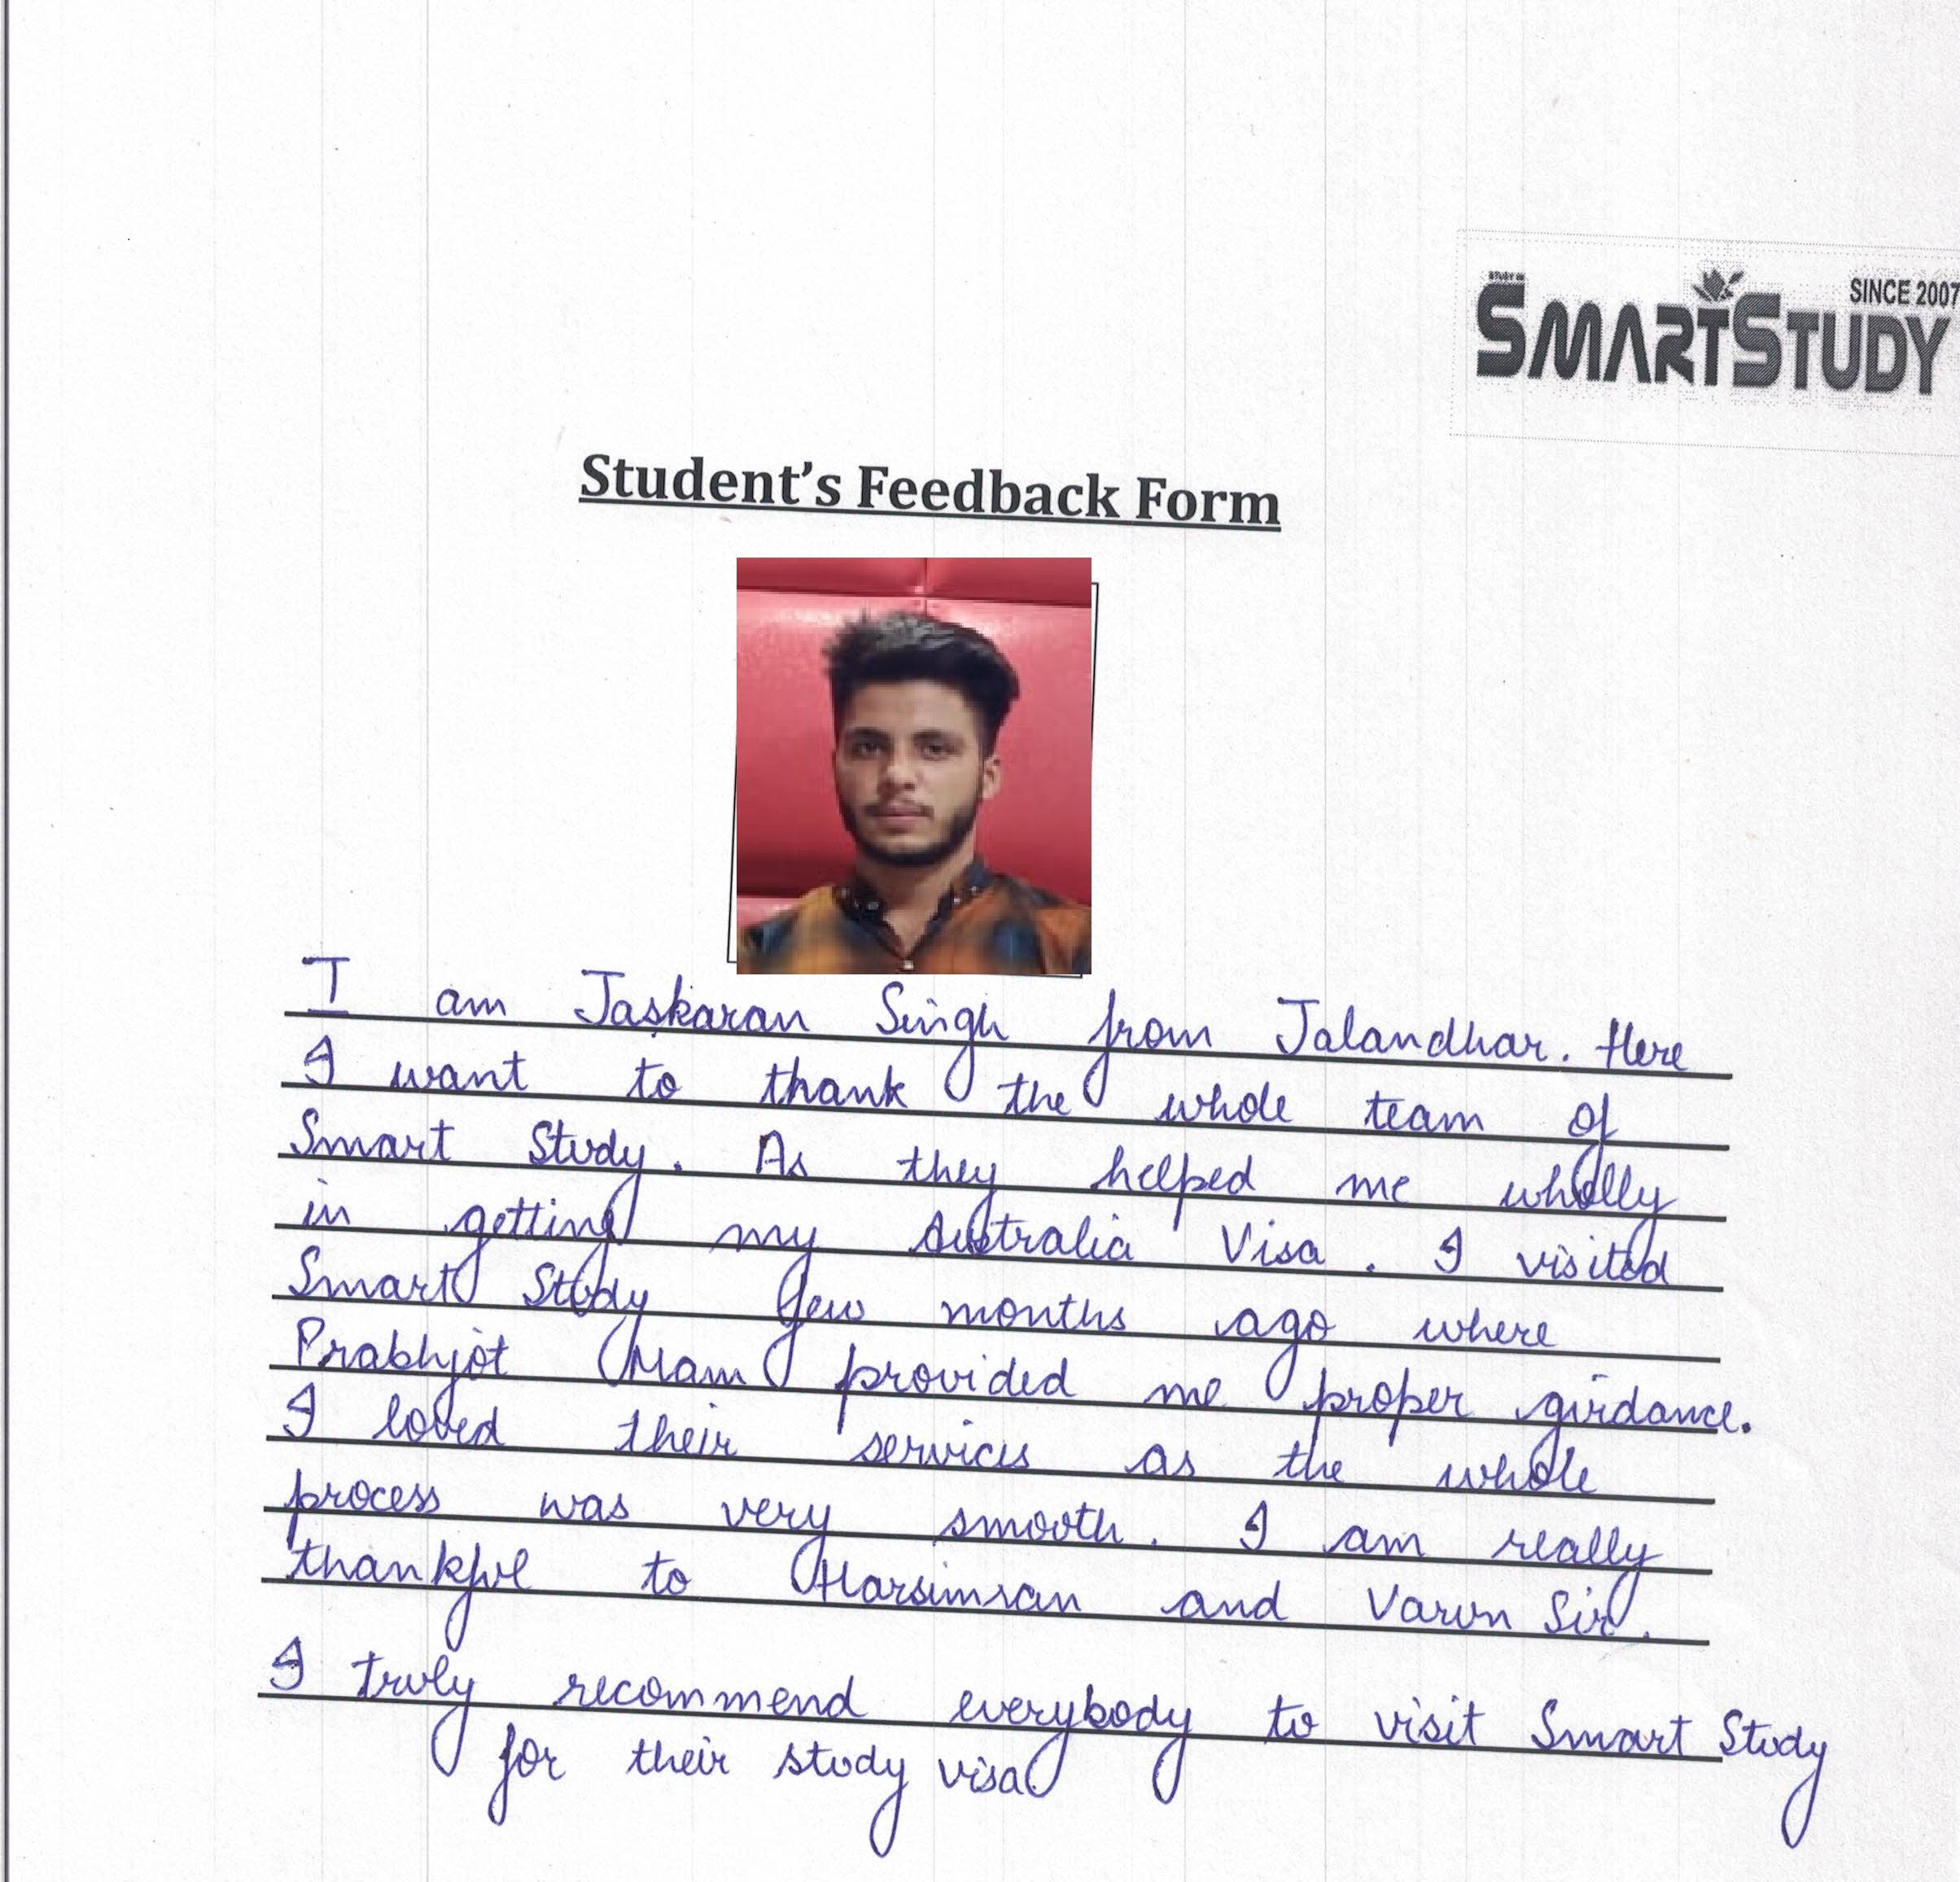 STUDY IN
SINCE 2007
SMARTSTUDY
Student's Feedback Form
I am Jaskaran Singh from Jalandhar. Here
I want to thank the whole team of
Smart Study. As they helped me wholly
in getting my Australia Visa. I visited
Smart Study few months ago where
Prabhjot Mam provided me proper guidance.
I loved their services as the whole
process was very smooth. I am really
thankful to Harsimran and Varun Sir.
I truly recommend everybody to visit Smart Study
for their study visa